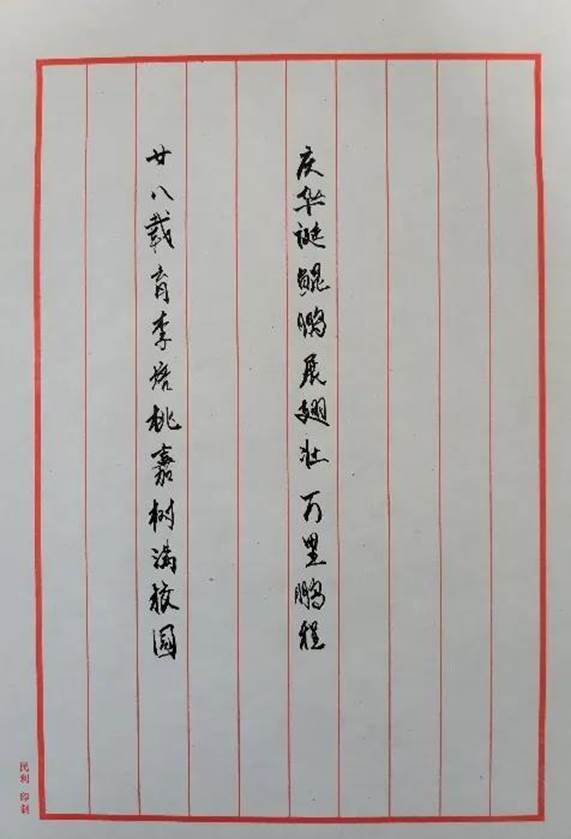 庆华诞鲲鹏展翅壮万里鹏程
廿八载育李培桃嘉树满校园
民利 印制